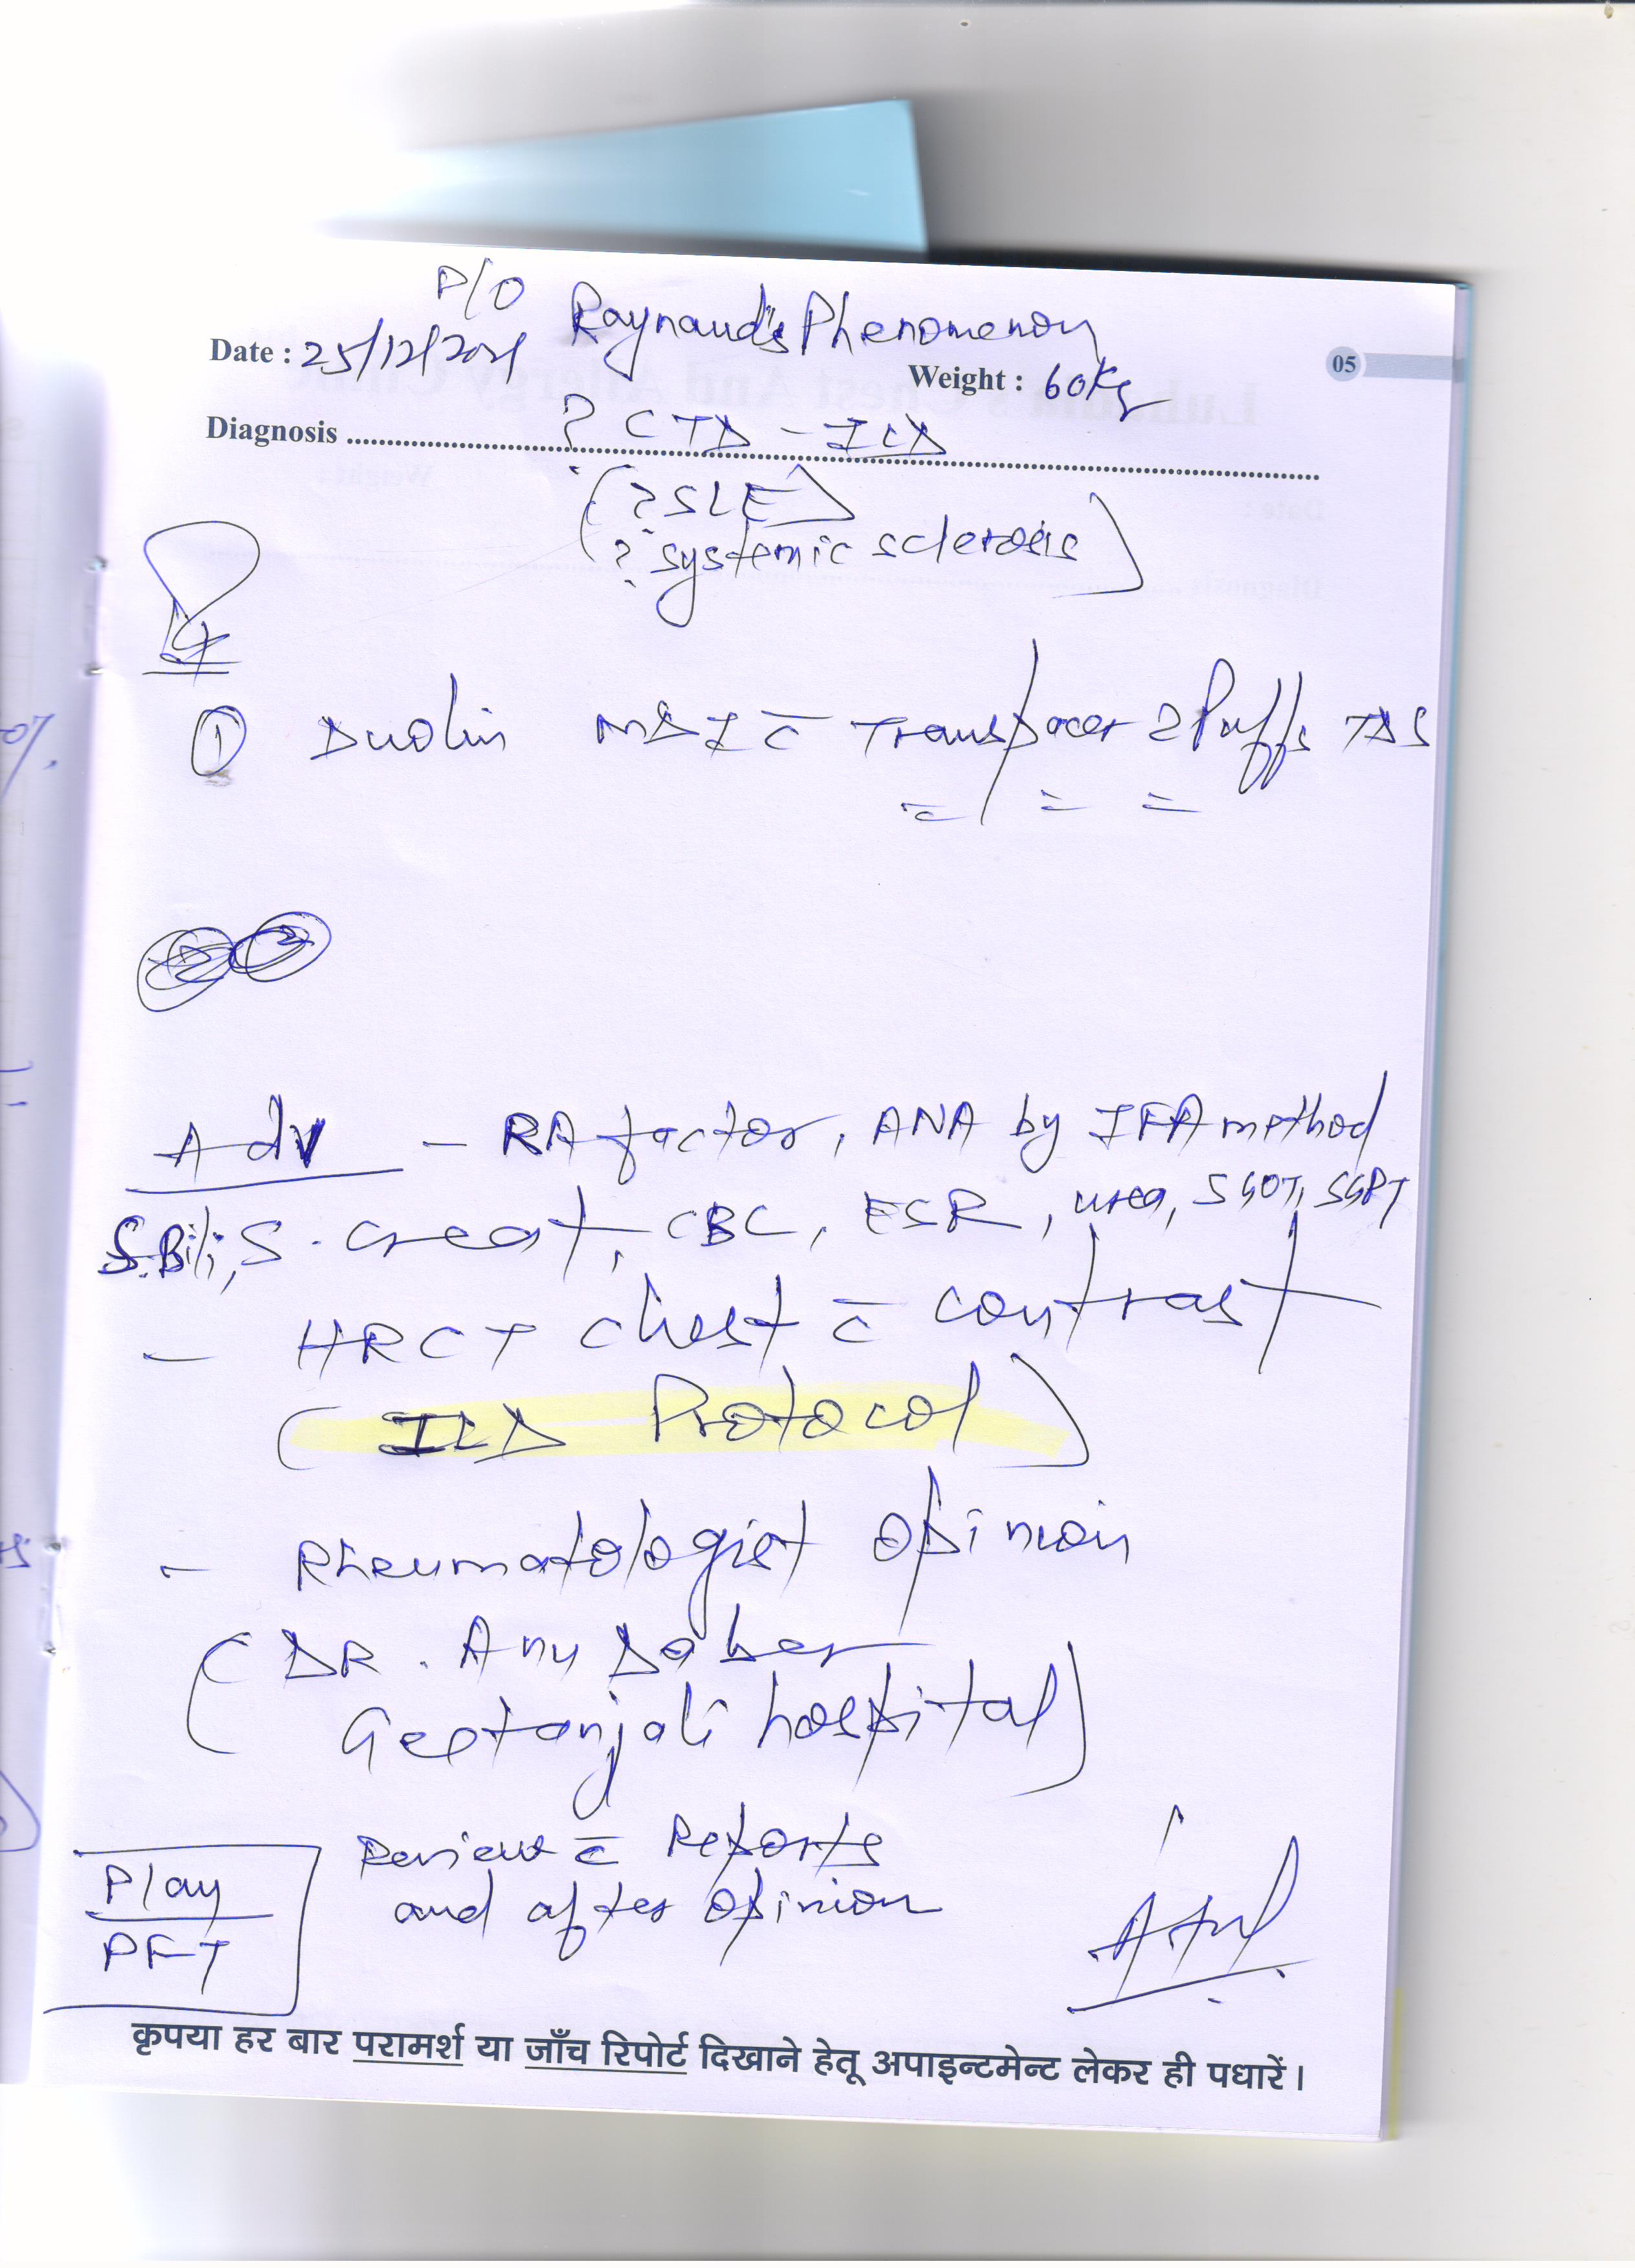 P/O Raynaud's Phenomenon
Date : 25/12/2021
Weight : 60Kg
05
Diagnosis ? CTD - ILD
(? SLE
? systemic sclerosis)
① Duolin MDI c̄ Transpacer 2 Puffs TDS
Adv - RA factor, ANA by IFA method
S.Bili, S. creat, CBC, ESR, urea, SGOT, SGPT
- HRCT chest c̄ contrast
(ILD Protocol)
- Rheumatologist opinion
(DR. Anu Daber
Geetanjali hospital)
Review c̄ Reports
and after opinion
Play
PFT
कृपया हर बार परामर्श या जाँच रिपोर्ट दिखाने हेतू अपाइन्टमेन्ट लेकर ही पधारें।